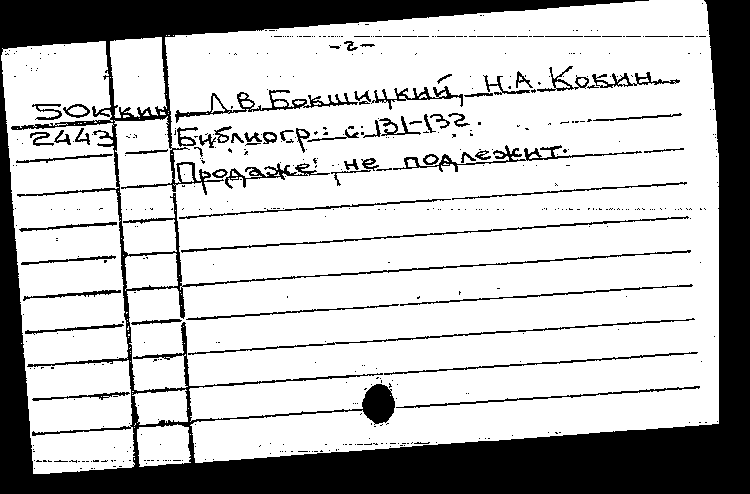 -2-
50к кин, Л.В. Бокшицкий, Н.А. Кокин.
2443 Библиогр.: с. 131-132.
Продаже не подлежит.